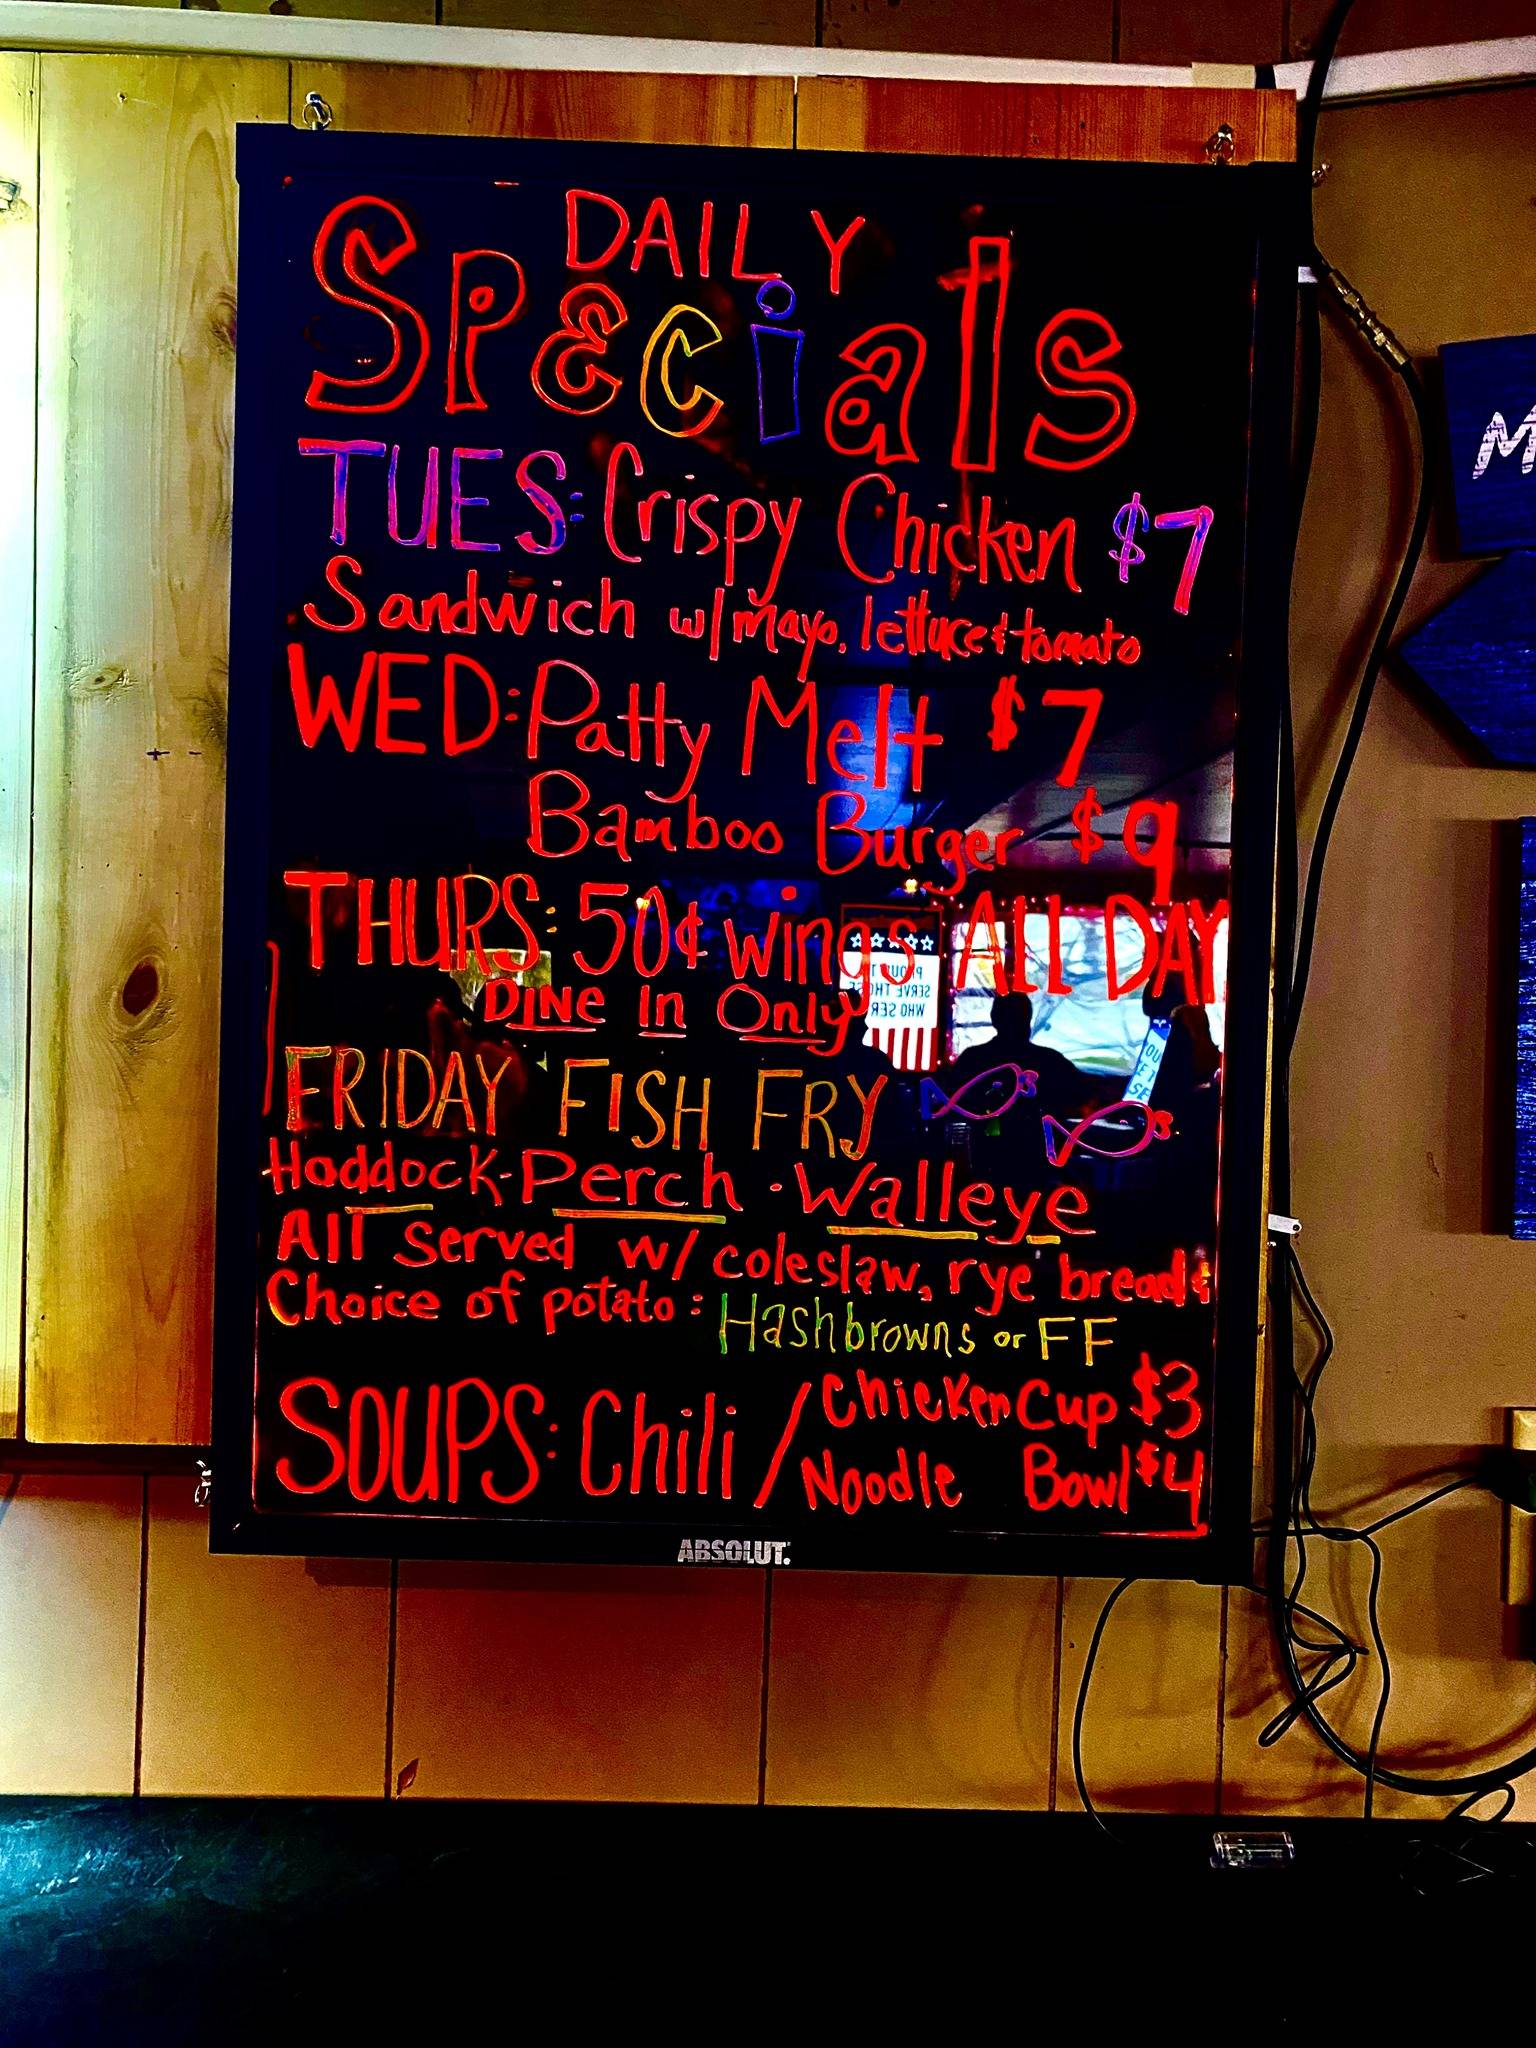 DAILY
Specials
TUES: Crispy Chicken $7
Sandwich w/mayo, lettuce & tomato
WED: Patty Melt $7
Bamboo Burger $9
THURS: 50¢ wings ALL DAY
DINe In Only
FRIDAY FISH FRY
Haddock - Perch · Walleye
All served w/ coleslaw, rye bread &
Choice of potato: Hashbrowns or FF
SOUPS: Chili / Chicken Cup $3
Noodle Bowl $4
ABSOLUT.
M